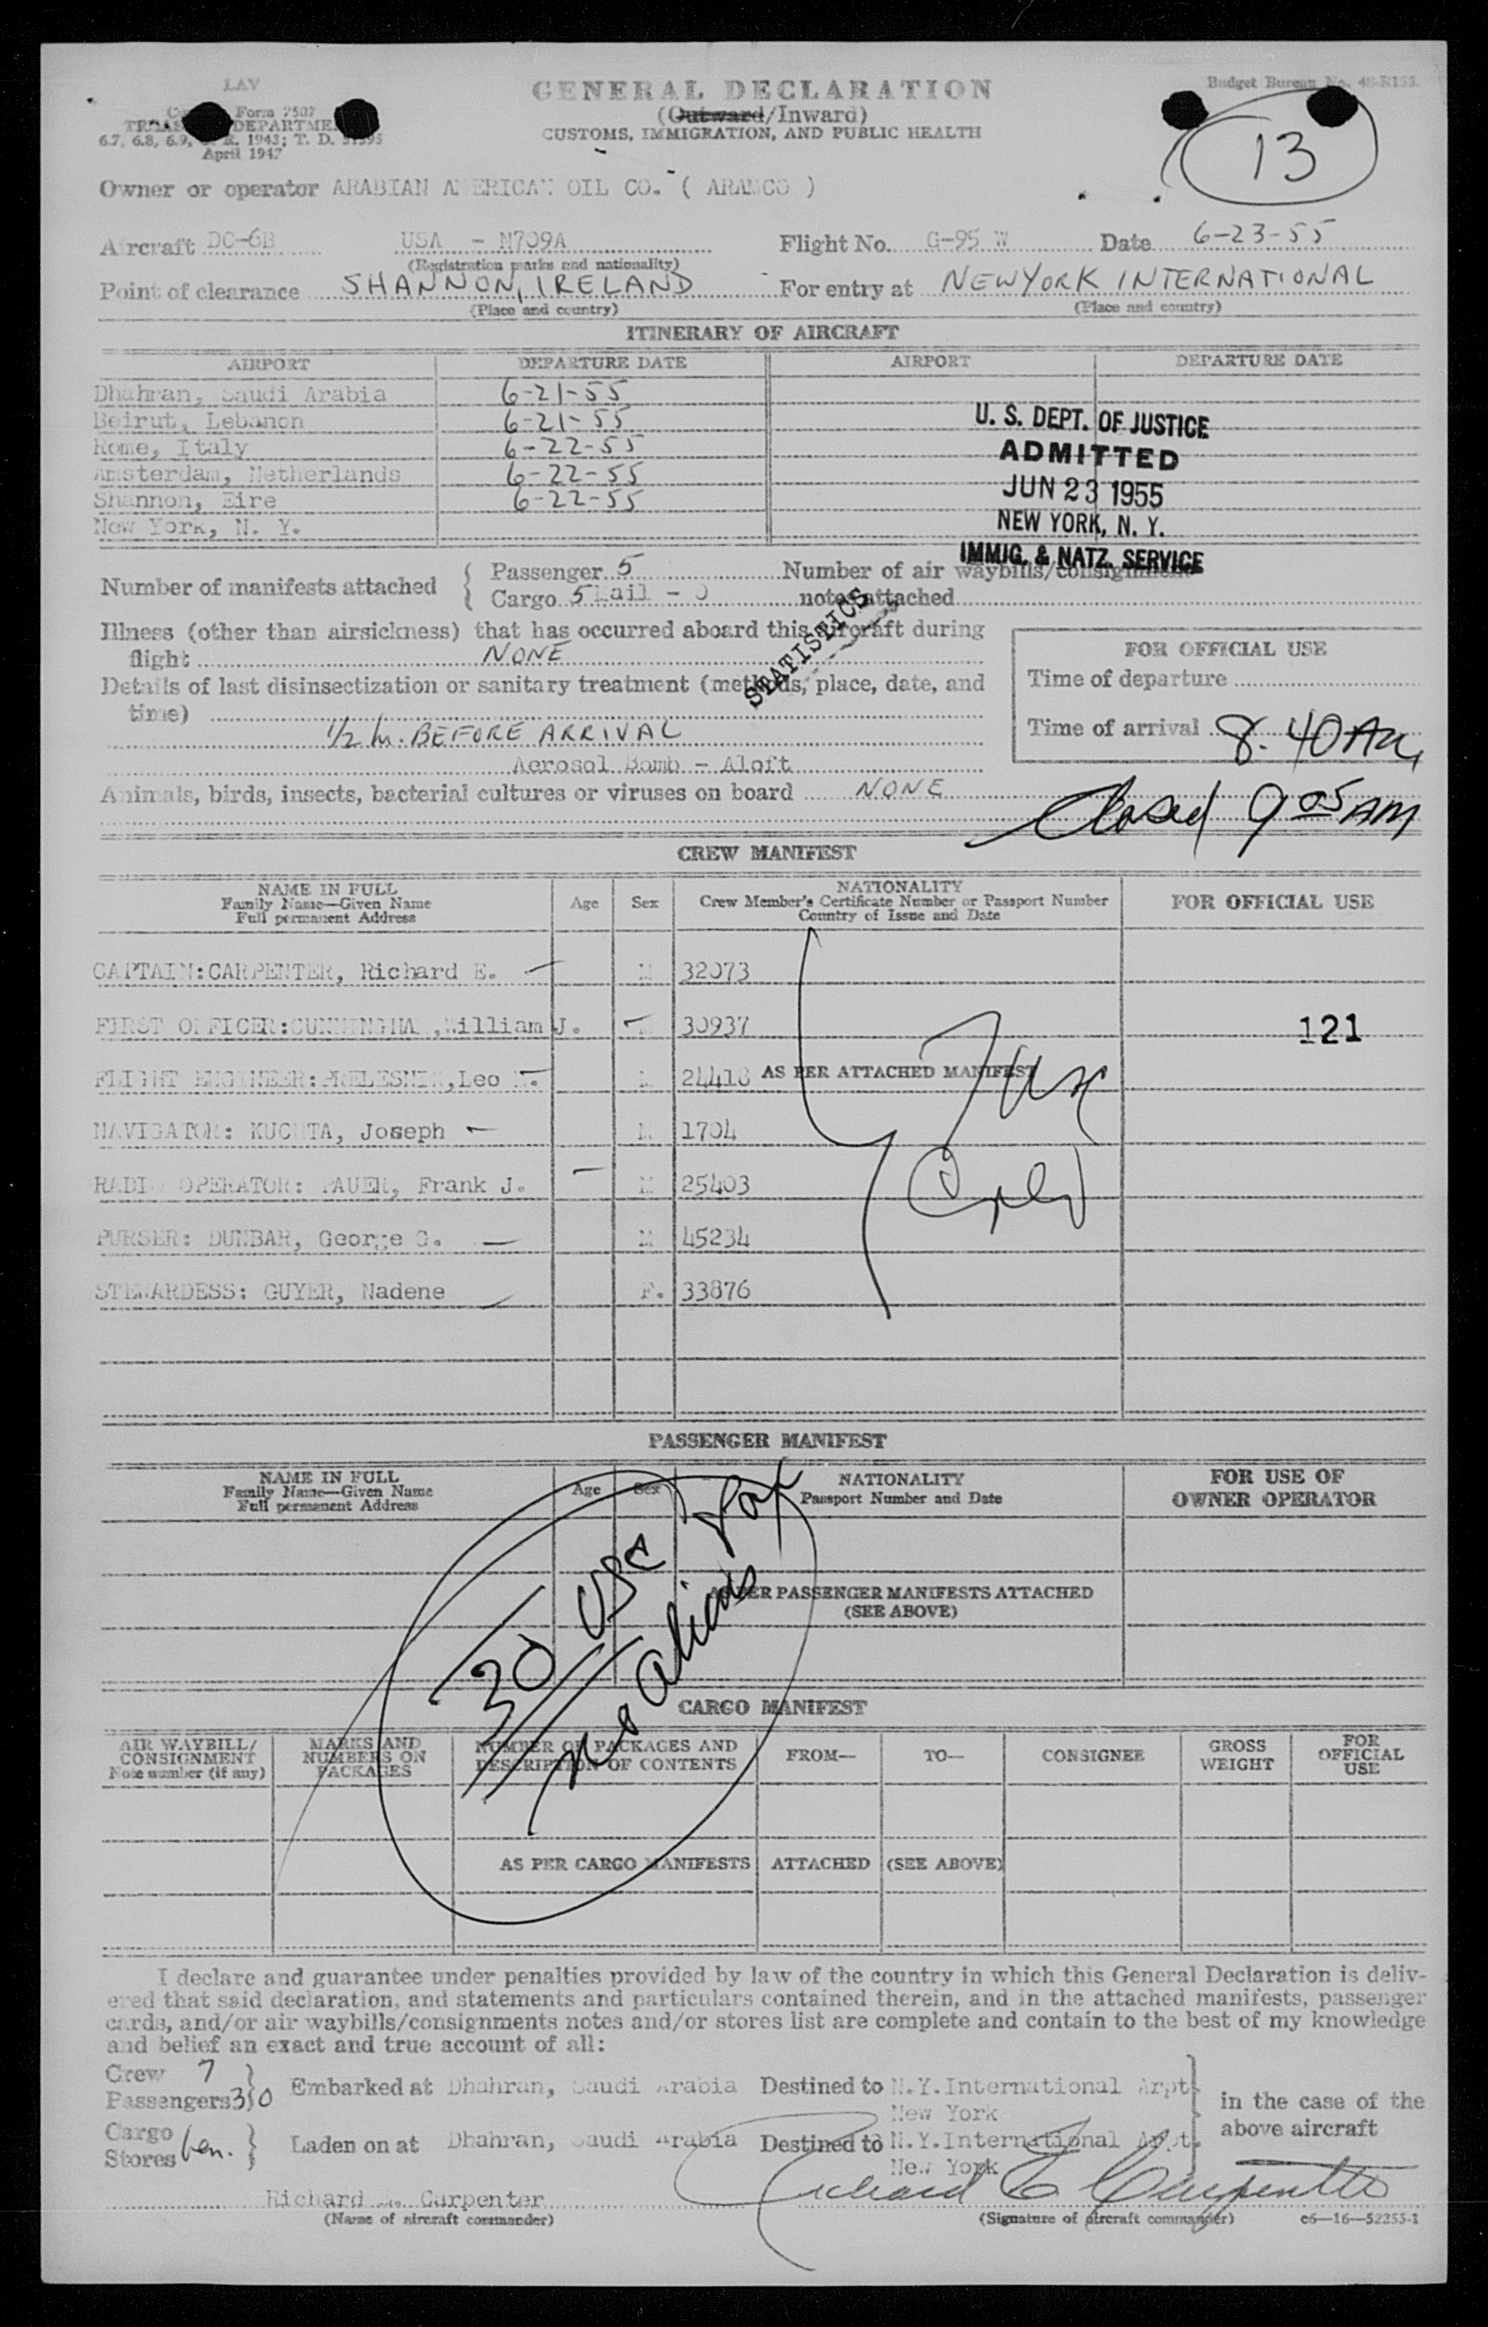 LAV
Form 7507
GENERAL DECLARATION
Budget Bureau No. 48-R155.
TREAS DEPARTME
(Outward/Inward)
6.7, 6.8, 6.9, R. 1943; T. D. 51595
CUSTOMS, IMMIGRATION, AND PUBLIC HEALTH
April 1947
13
Owner or operator ARABIAN AMERICAN OIL CO. ( ARAMCO )
Aircraft DC-6B USA - N709A Flight No. G-95 W Date 6-23-55
(Registration marks and nationality)
Point of clearance SHANNON, IRELAND For entry at NEWYORK INTERNATIONAL
(Place and country) (Place and country)
ITINERARY OF AIRCRAFT
AIRPORT DEPARTURE DATE AIRPORT DEPARTURE DATE
Dhahran, Saudi Arabia 6-21-55
Beirut, Lebanon 6-21-55
Rome, Italy 6-22-55
Amsterdam, Netherlands 6-22-55
Shannon, Eire 6-22-55
New York, N. Y.
U. S. DEPT. OF JUSTICE
ADMITTED
JUN 23 1955
NEW YORK, N. Y.
IMMIG. & NATZ. SERVICE
Number of manifests attached { Passenger 5 Number of air waybills/consignment
Cargo 5 Mail - 0 notes attached
STATISTICS
Illness (other than airsickness) that has occurred aboard this aircraft during
flight NONE
Details of last disinsectization or sanitary treatment (methods, place, date, and
time)
1/2 hr. BEFORE ARRIVAL
Aerosol Bomb - Aloft
FOR OFFICIAL USE
Time of departure
Time of arrival 8:40 AM
Animals, birds, insects, bacterial cultures or viruses on board NONE
Closed 9 05 AM
CREW MANIFEST
NAME IN FULL
Family Name—Given Name
Full permanent Address
Age Sex
NATIONALITY
Crew Member's Certificate Number or Passport Number
Country of Issue and Date
FOR OFFICIAL USE
CAPTAIN: CARPENTER, Richard E. M 32073
FIRST OFFICER: CUNNINGHAM, William J. M 30937
121
FLIGHT ENGINEER: Leo M 24418 AS PER ATTACHED MANIFEST
NAVIGATOR: KUCHTA, Joseph M 1704
RADIO OPERATOR: Frank J. M 25403
PURSER: DUNBAR, George G. M 45234
STEWARDESS: GUYER, Nadene F. 33876
PASSENGER MANIFEST
NAME IN FULL
Family Name—Given Name
Full permanent Address
Age Sex
NATIONALITY
Passport Number and Date
FOR USE OF
OWNER OPERATOR
30 USC Pax
no aliens
AS PER PASSENGER MANIFESTS ATTACHED
(SEE ABOVE)
CARGO MANIFEST
AIR WAYBILL/
CONSIGNMENT
Note number (if any)
MARKS AND
NUMBERS ON
PACKAGES
NUMBER OF PACKAGES AND
DESCRIPTION OF CONTENTS
FROM— TO— CONSIGNEE
GROSS
WEIGHT
FOR
OFFICIAL
USE
AS PER CARGO MANIFESTS ATTACHED (SEE ABOVE)
I declare and guarantee under penalties provided by law of the country in which this General Declaration is deliv-
ered that said declaration, and statements and particulars contained therein, and in the attached manifests, passenger
cards, and/or air waybills/consignments notes and/or stores list are complete and contain to the best of my knowledge
and belief an exact and true account of all:
Crew 7
Passengers 30 } Embarked at Dhahran, Saudi Arabia Destined to N.Y. International Arpt.
New York
in the case of the
above aircraft
Cargo
Stores Gen. } Laden on at Dhahran, Saudi Arabia Destined to N.Y. International Arpt.
New York
Richard E. Carpenter Richard E Carpenter
(Name of aircraft commander) (Signature of aircraft commander) c6—16—52255-1